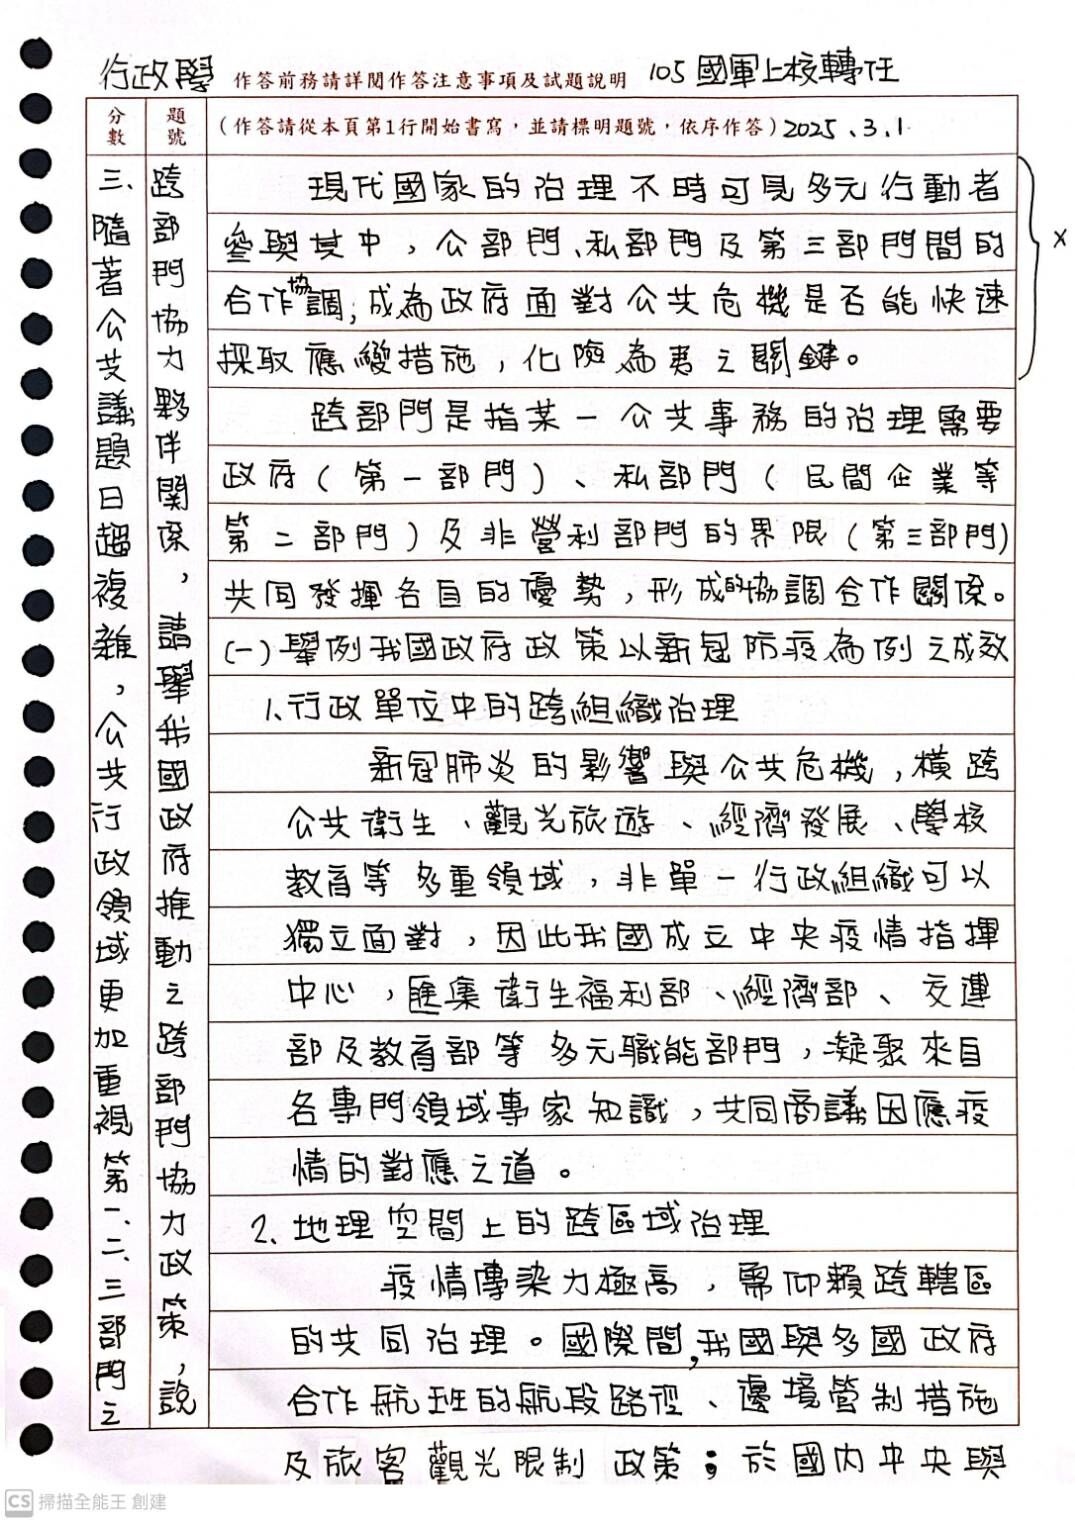 行政學 作答前務請詳閱作答注意事項及試題說明 105國軍上校轉任
分數
題號
(作答請從本頁第1行開始書寫，並請標明題號，依序作答) 2025.3.1.
三、隨著公共議題日趨複雜，公共行政領域更加重視第一、二、三部門之
跨部門協力夥伴關係，請舉我國政府推動之跨部門協力政策，說
現代國家的治理不時可見多元行動者
參與其中，公部門、私部門及第三部門間的
合作協調，成為政府面對公共危機是否能快速
採取應變措施，化險為夷之關鍵。
X
跨部門是指某一公共事務的治理需要
政府(第一部門)、私部門(民間企業等
第二部門)及非營利部門的界限(第三部門)
共同發揮各自的優勢，形成的協調合作關係。
(一)舉例我國政府政策以新冠防疫為例之成效
1.行政單位中的跨組織治理
新冠肺炎的影響與公共危機，橫跨
公共衛生、觀光旅遊、經濟發展、學校
教育等多重領域，非單一行政組織可以
獨立面對，因此我國成立中央疫情指揮
中心，匯集衛生福利部、經濟部、交通
部及教育部等多元職能部門，凝聚來自
各專門領域專家知識，共同商議因應疫
情的對應之道。
2.地理空間上的跨區域治理
疫情傳染力極高，需仰賴跨轄區
的共同治理。國際間，我國與多國政府
合作航班的航段路徑、邊境管制措施
及旅客觀光限制政策；於國內中央與
CS 掃描全能王 創建